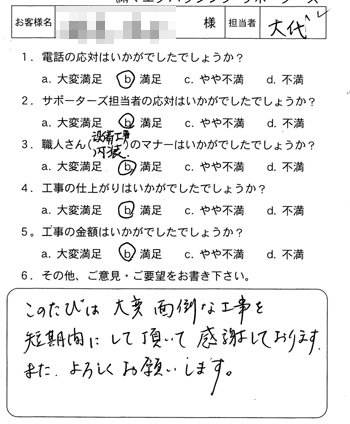 お客様名 様 担当者 大代
1．電話の応対はいかがでしたでしょうか？
a. 大変満足 b. 満足 c. やや不満 d. 不満
2．サポーターズ担当者の応対はいかがでしたでしょうか？
a. 大変満足 b. 満足 c. やや不満 d. 不満
設備工事
3．職人さん(内装)のマナーはいかがでしたでしょうか？
a. 大変満足 b. 満足 c. やや不満 d. 不満
4．工事の仕上がりはいかがでしたでしょうか？
a. 大変満足 b. 満足 c. やや不満 d. 不満
5。工事の金額はいかがでしたでしょうか？
a. 大変満足 b. 満足 c. やや不満 d. 不満
6．その他、ご意見・ご要望をお書き下さい。
このたびは 大変 面倒な工事を
短期間にして頂いて 感謝しております.
また、よろしくお願いします。